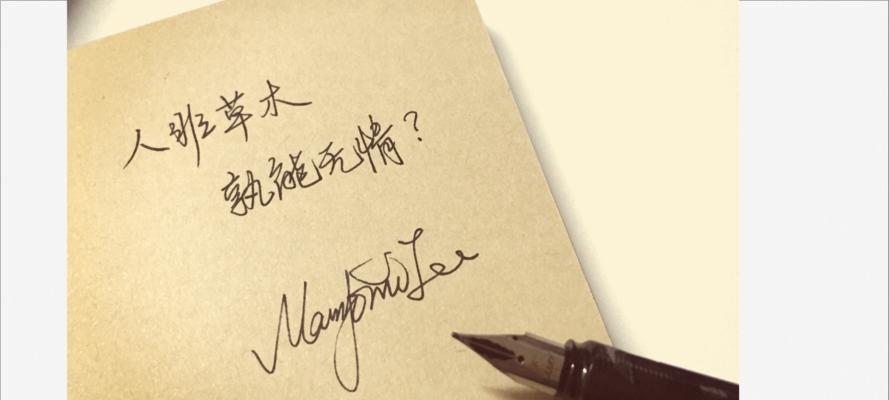 人非草木
孰能无情?
Lee